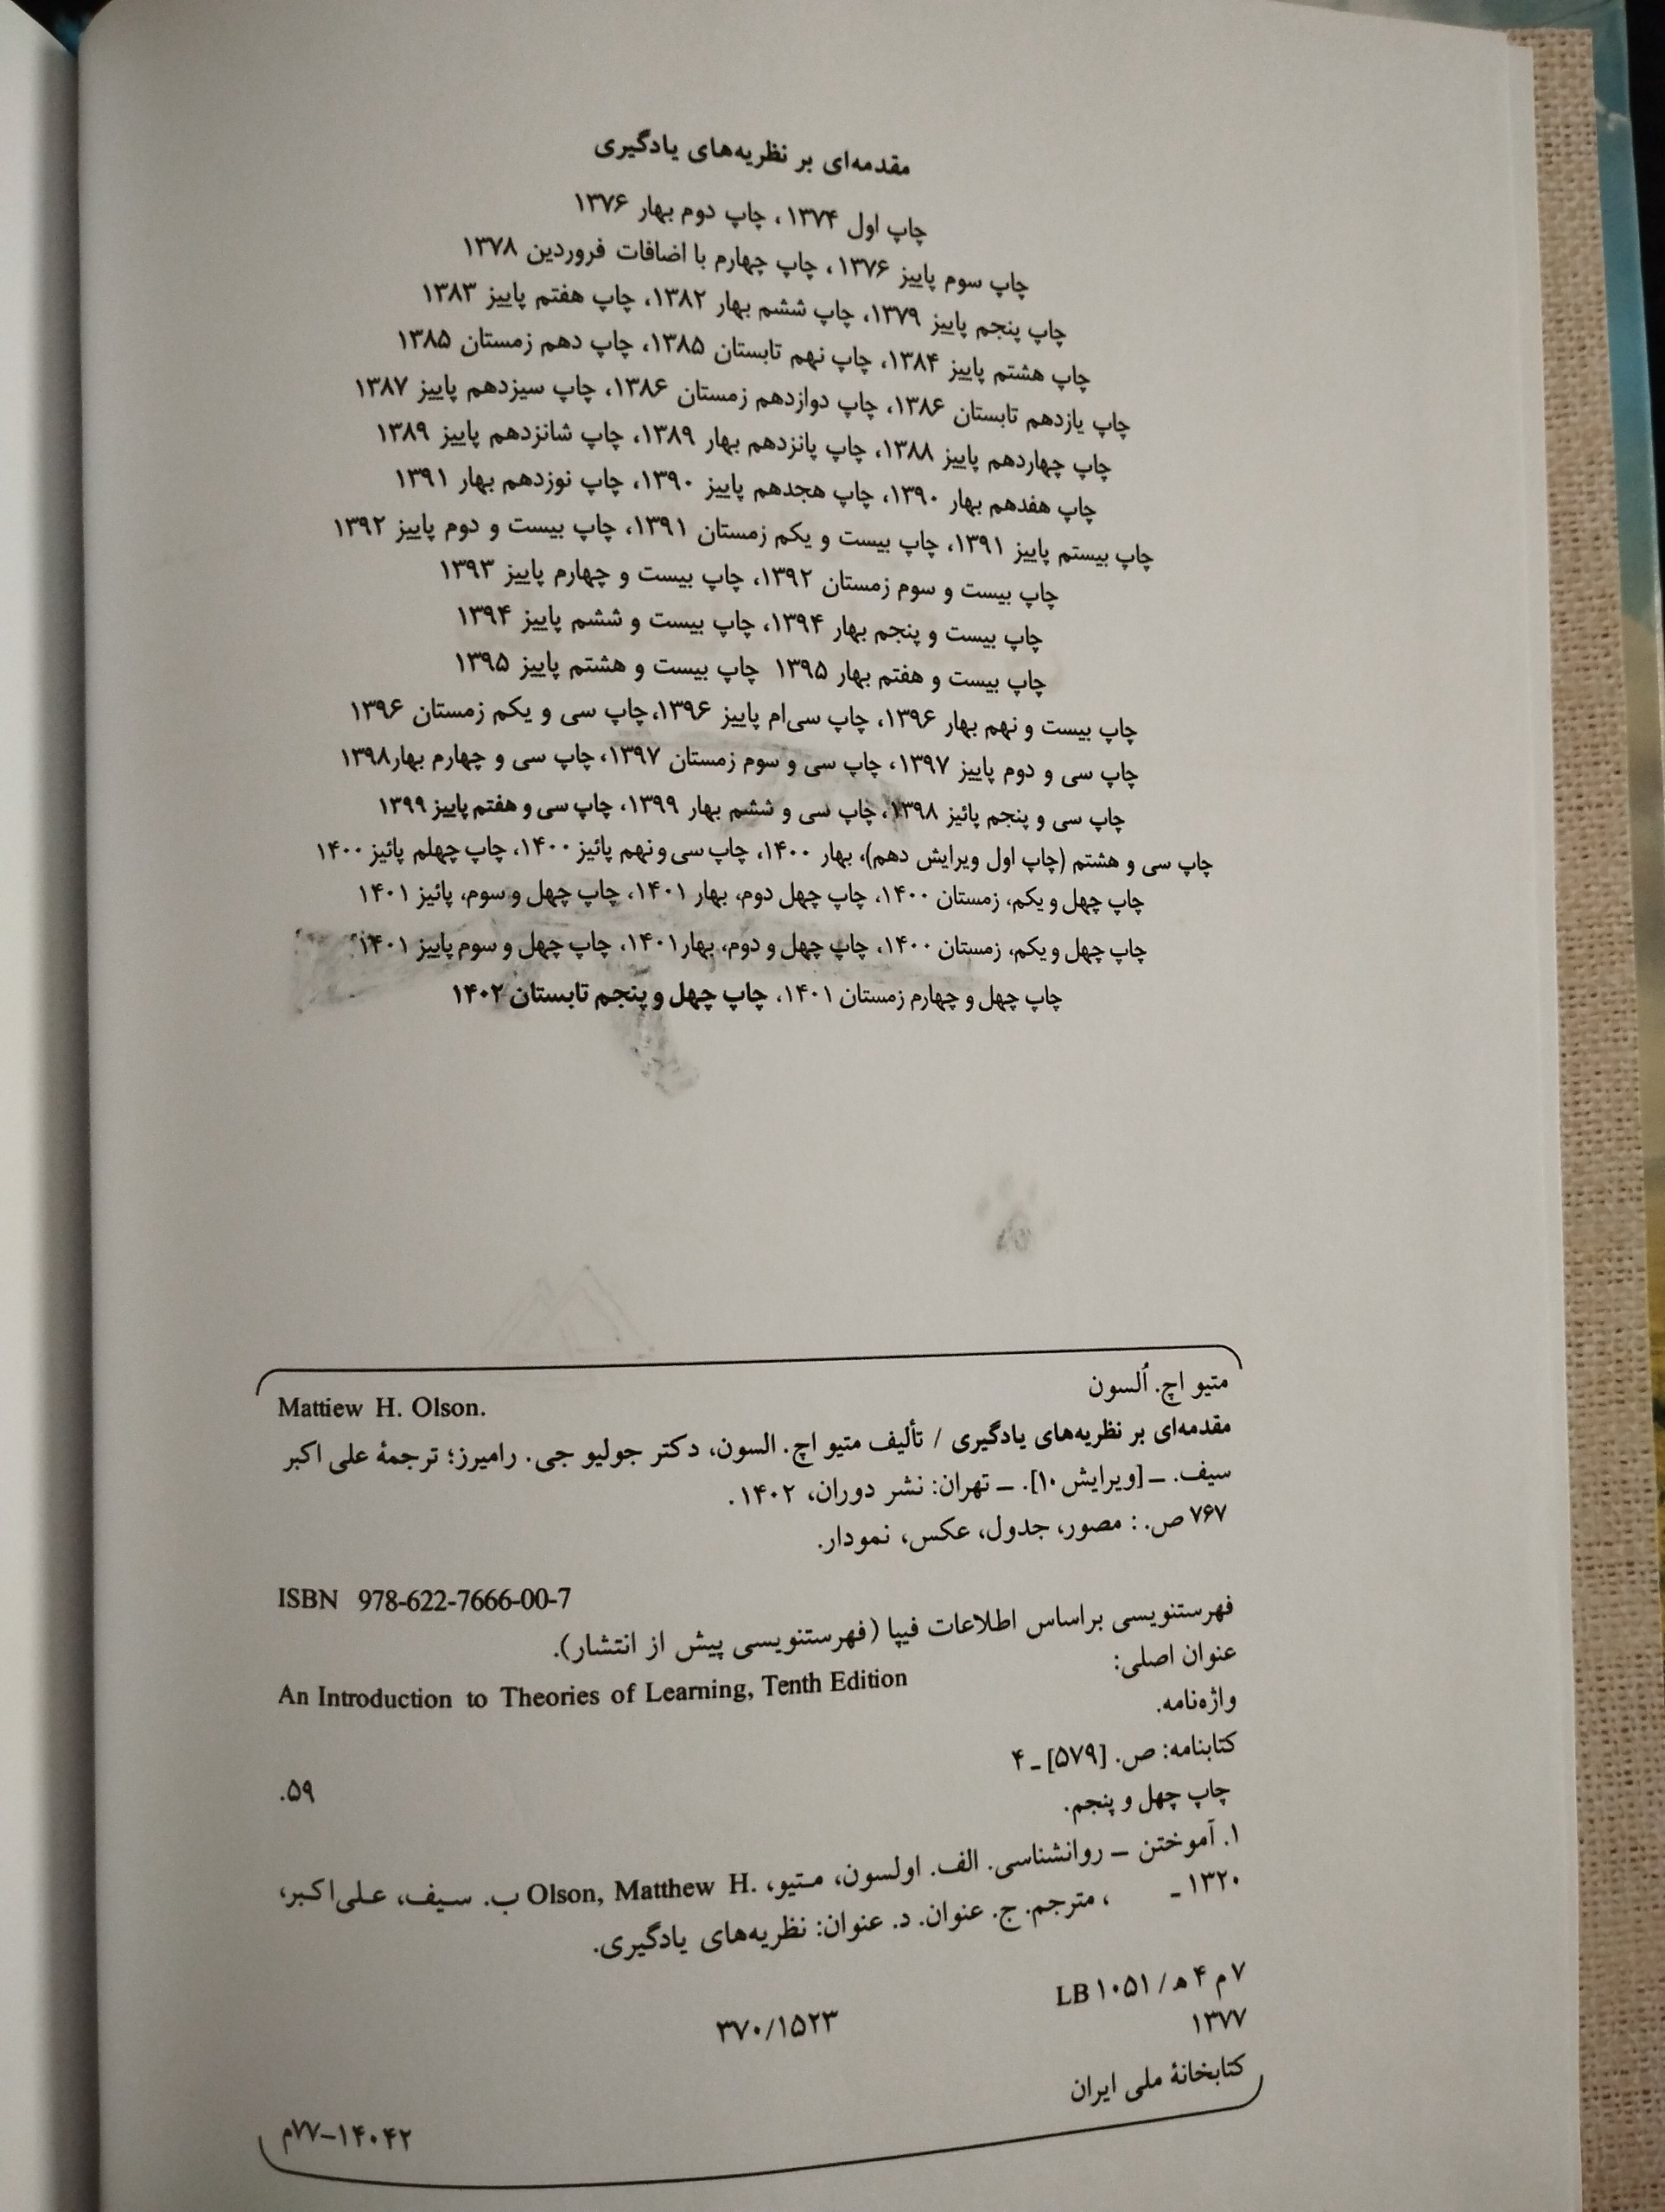 مقدمه‌ای بر نظریه‌های یادگیری
چاپ اول ۱۳۷۴، چاپ دوم بهار ۱۳۷۶
چاپ سوم پاییز ۱۳۷۶، چاپ چهارم با اضافات فروردین ۱۳۷۸
چاپ پنجم پاییز ۱۳۷۹، چاپ ششم بهار ۱۳۸۲، چاپ هفتم پاییز ۱۳۸۳
چاپ هشتم پاییز ۱۳۸۴، چاپ نهم تابستان ۱۳۸۵، چاپ دهم زمستان ۱۳۸۵
چاپ یازدهم تابستان ۱۳۸۶، چاپ دوازدهم زمستان ۱۳۸۶، چاپ سیزدهم پاییز ۱۳۸۷
چاپ چهاردهم پاییز ۱۳۸۸، چاپ پانزدهم بهار ۱۳۸۹، چاپ شانزدهم پاییز ۱۳۸۹
چاپ هفدهم بهار ۱۳۹۰، چاپ هجدهم پاییز ۱۳۹۰، چاپ نوزدهم بهار ۱۳۹۱
چاپ بیستم پاییز ۱۳۹۱، چاپ بیست و یکم زمستان ۱۳۹۱، چاپ بیست و دوم پاییز ۱۳۹۲
چاپ بیست و سوم زمستان ۱۳۹۲، چاپ بیست و چهارم پاییز ۱۳۹۳
چاپ بیست و پنجم بهار ۱۳۹۴، چاپ بیست و ششم پاییز ۱۳۹۴
چاپ بیست و هفتم بهار ۱۳۹۵ چاپ بیست و هشتم پاییز ۱۳۹۵
چاپ بیست و نهم بهار ۱۳۹۶، چاپ سی‌ام پاییز ۱۳۹۶،چاپ سی و یکم زمستان ۱۳۹۶
چاپ سی و دوم پاییز ۱۳۹۷، چاپ سی و سوم زمستان ۱۳۹۷، چاپ سی و چهارم بهار۱۳۹۸
چاپ سی و پنجم پائیز ۱۳۹۸، چاپ سی و ششم بهار ۱۳۹۹، چاپ سی و هفتم پاییز ۱۳۹۹
چاپ سی و هشتم (چاپ اول ویرایش دهم)، بهار ۱۴۰۰، چاپ سی و نهم پائیز ۱۴۰۰، چاپ چهلم پائیز ۱۴۰۰
چاپ چهل و یکم، زمستان ۱۴۰۰، چاپ چهل دوم، بهار ۱۴۰۱، چاپ چهل و سوم، پائیز ۱۴۰۱
چاپ چهل و یکم، زمستان ۱۴۰۰، چاپ چهل و دوم، بهار۱۴۰۱، چاپ چهل و سوم پاییز ۱۴۰۱
چاپ چهل و چهارم زمستان ۱۴۰۱، چاپ چهل و پنجم تابستان ۱۴۰۲
متیو اچ. اُلسون
Mattiew H. Olson.
مقدمه‌ای بر نظریه‌های یادگیری / تألیف متیو اچ. السون، دکتر جولیو جی. رامیرز؛ ترجمهٔ علی اکبر
سیف. ـ [ویرایش ۱۰]. ـ تهران: نشر دوران، ۱۴۰۲.
۷۶۷ ص. : مصور، جدول، عکس، نمودار.
ISBN 978-622-7666-00-7
فهرستنویسی براساس اطلاعات فیپا (فهرستنویسی پیش از انتشار).
عنوان اصلی:
An Introduction to Theories of Learning, Tenth Edition
واژه‌نامه.
کتابنامه: ص. [۵۷۹] ـ ۴
۵۹.
چاپ چهل و پنجم.
۱. آموختن ـ روانشناسی. الف. اولسون، متیو، Olson, Matthew H. ب. سیف، علی‌اکبر،
۱۳۲۰ ـ ، مترجم. ج. عنوان. د. عنوان: نظریه‌های یادگیری.
۷ م ۴ ه‍ / LB ۱۰۵۱
۳۷۰/۱۵۲۳ ۱۳۷۷
کتابخانهٔ ملی ایران
۱۴۰۴۲–۷۷م